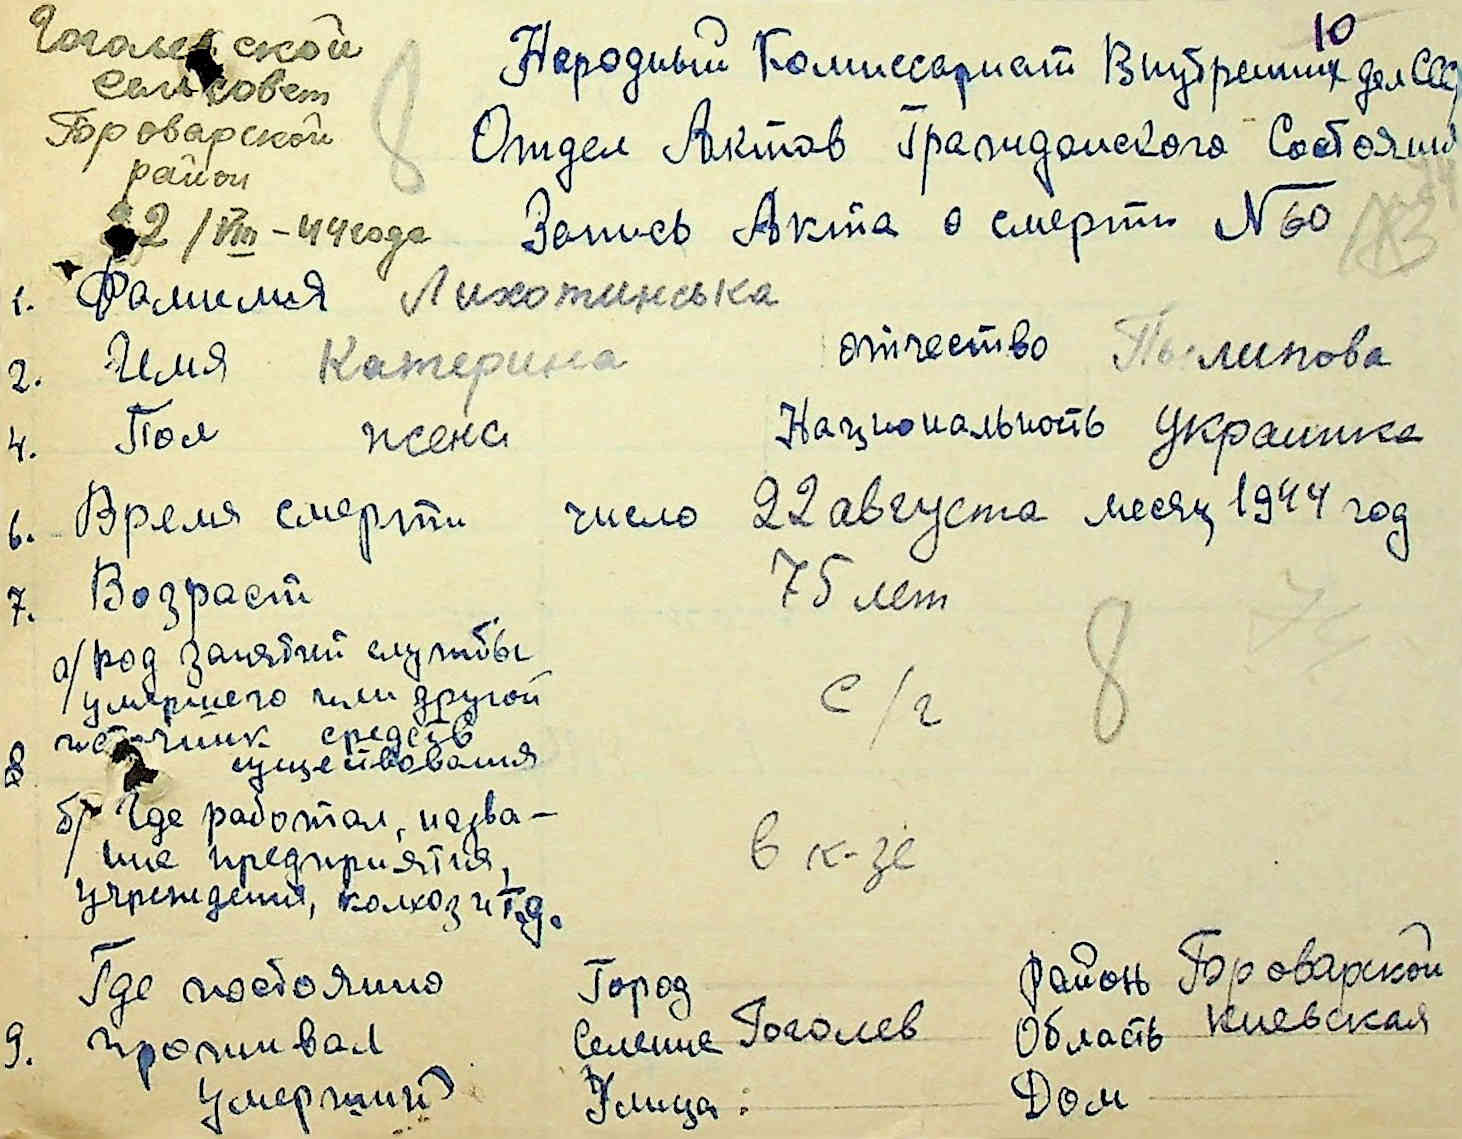 10
Гоголевской
сельсовет
Бороварской
район
22/VIII-44 года
8
Народный Комиссариат Внутренних дел СССР
Отдел Актов Гражданского Состояния
Запись Акта о смерти N 60
1. Фамилия Лихотинська
2. Имя Катерина отчество Пылипова
4. Пол женс Национальность украинка
6. Время смерти число 22 августа месяц 1944 год
7. Возраст 75 лет
8
8
а/ род занятий службы
умершего или другой
источник средств
существования
с/г
б/ Где работал, назва-
ние предприятия,
учреждения, колхоз и т.д.
в к-зе
9. Где постояно
проживал
умерший
Город
Селение Гоголев
Улица:
Район Бороварской
Область Киевская
Дом